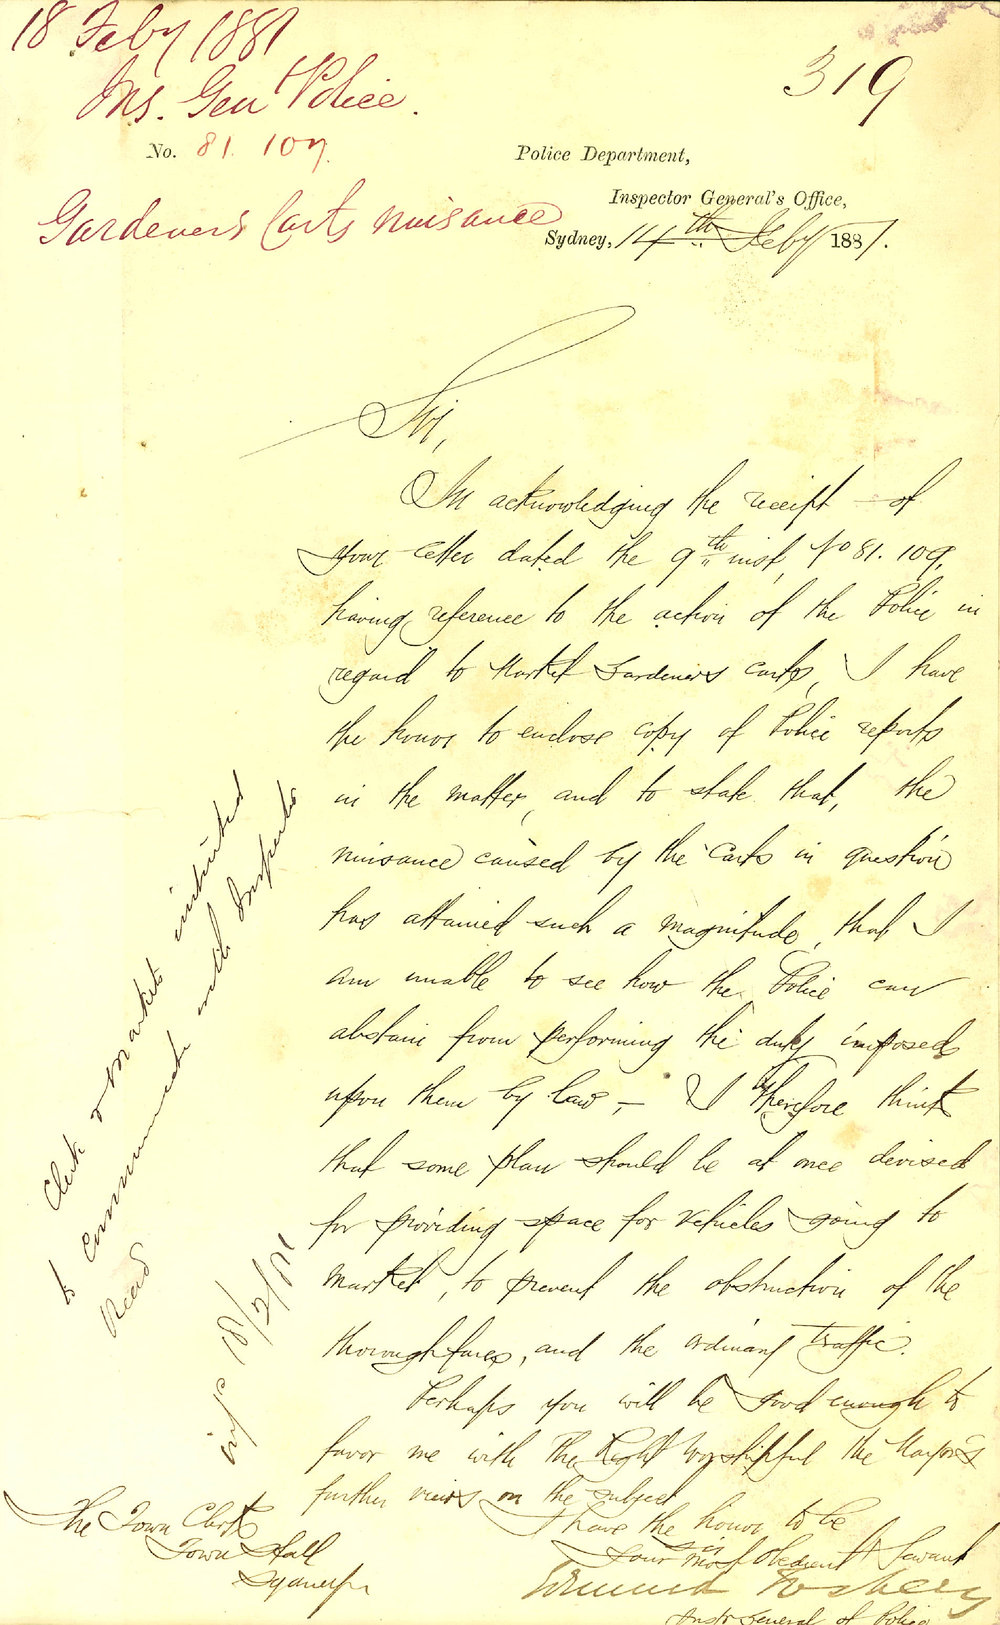 18 Feby 1881
Ins. Genl Police.
319
No. 81. 109.
Police Department,
Inspector General's Office,
Gardeners Carts nuisance
Sydney, 14th Feby 1881.
Sir,
In acknowledging the receipt of
your letter dated the 9th inst, No 81. 109,
having reference to the action of the Police in
regard to Market Gardeners carts, I have
the honor to enclose copy of Police reports
in the matter, and to state that, the
nuisance caused by the carts in question
has attained such a magnitude, that I
am unable to see how the Police can
abstain from performing the duty imposed
upon them by law, — I therefore think
that some plan should be at once devised
for providing space for vehicles going to
market, to prevent the obstruction of the
thoroughfares, and the ordinary traffic.
Perhaps you will be good enough to
favor me with the Right Worshipful the Mayor's
further views on the subject
I have the honor to be
Sir
Your most Obedient Servant
Edmund Fosbery
Inspr General of Police
The Town Clerk
Town Hall
Sydney
Clerk of Markets instructed
to communicate with Inspector
Read
18/2/81